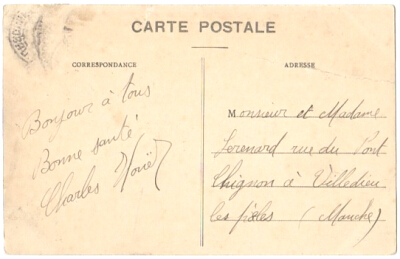 CARTE POSTALE
CORRESPONDANCE
ADRESSE
Bonjour à tous
Bonne santé
Charles
Monsieur et Madame
Lerenard rue du Pont
Chignon à Villedieu
les pôles (Manche)